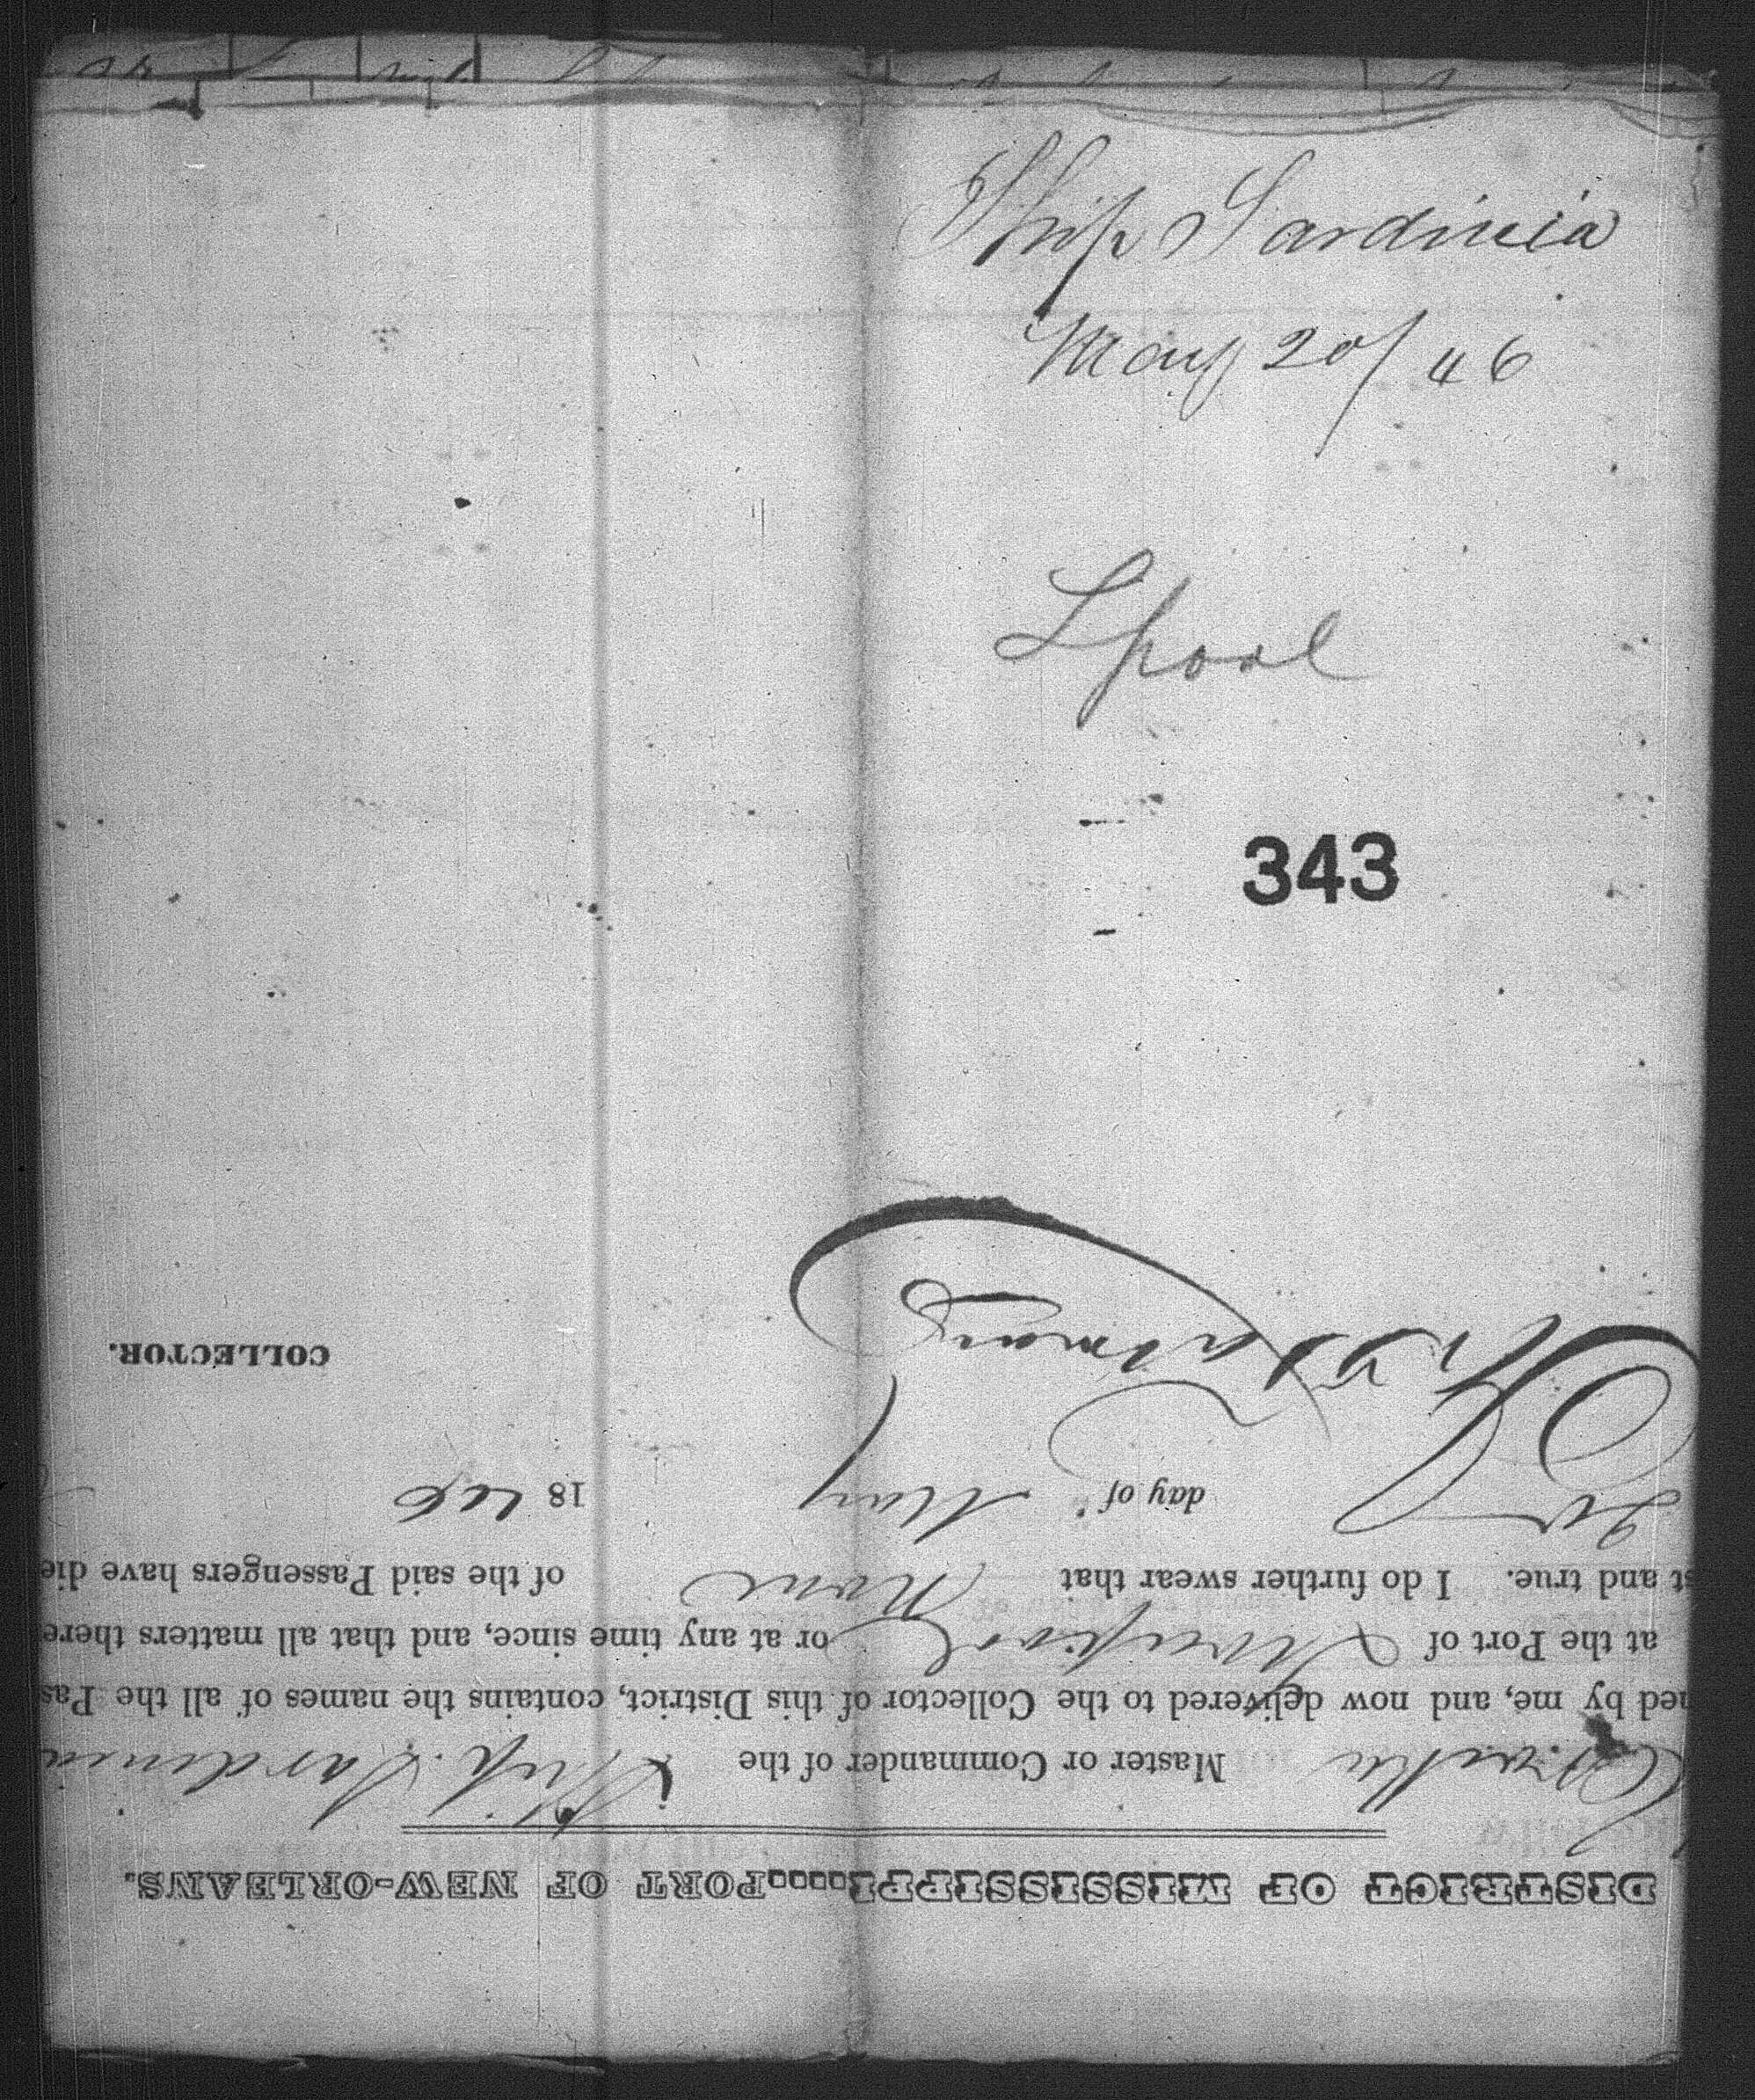 Ship Sardinia
May 20/46
Lpool
343
DISTRICT OF MISSISSIPPI.....PORT OF NEW-ORLEANS.
Master or Commander of the Ship Sardinia
ned by me, and now delivered to the Collector of this District, contains the names of all the Pas
at the Port of Liverpool or at any time since, and that all matters there
st and true. I do further swear that None of the said Passengers have die
20 day of May 1846
COLLECTOR.